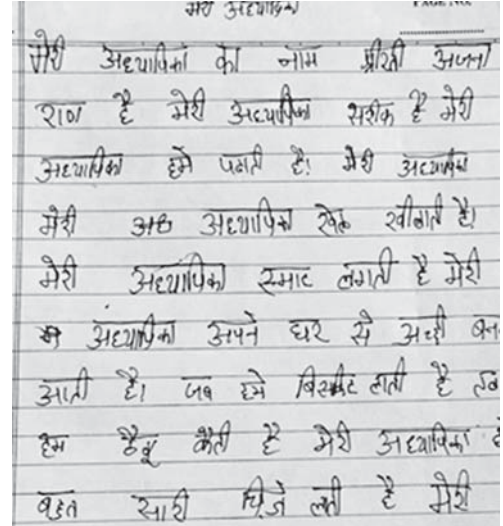 मेरी अध्यापिका
मेरी अध्यापिका का नाम श्रीमती अंजना
राणा है मेरी अध्यापिका सरीक है मेरी
अध्यापिका हमे पढाती है। मेरी अध्यापिका
मेरी अध अध्यापिका खेल खीलाती है।
मेरी अध्यापिका स्माट लगती है मेरी
अध्यापिका अपने घर से अच्छी बन
आती है। जब हमे बिस्कीट लाती है तब
हम कैती है मेरी अध्यापिका
बहुत सारी चिजे लती है मेरी